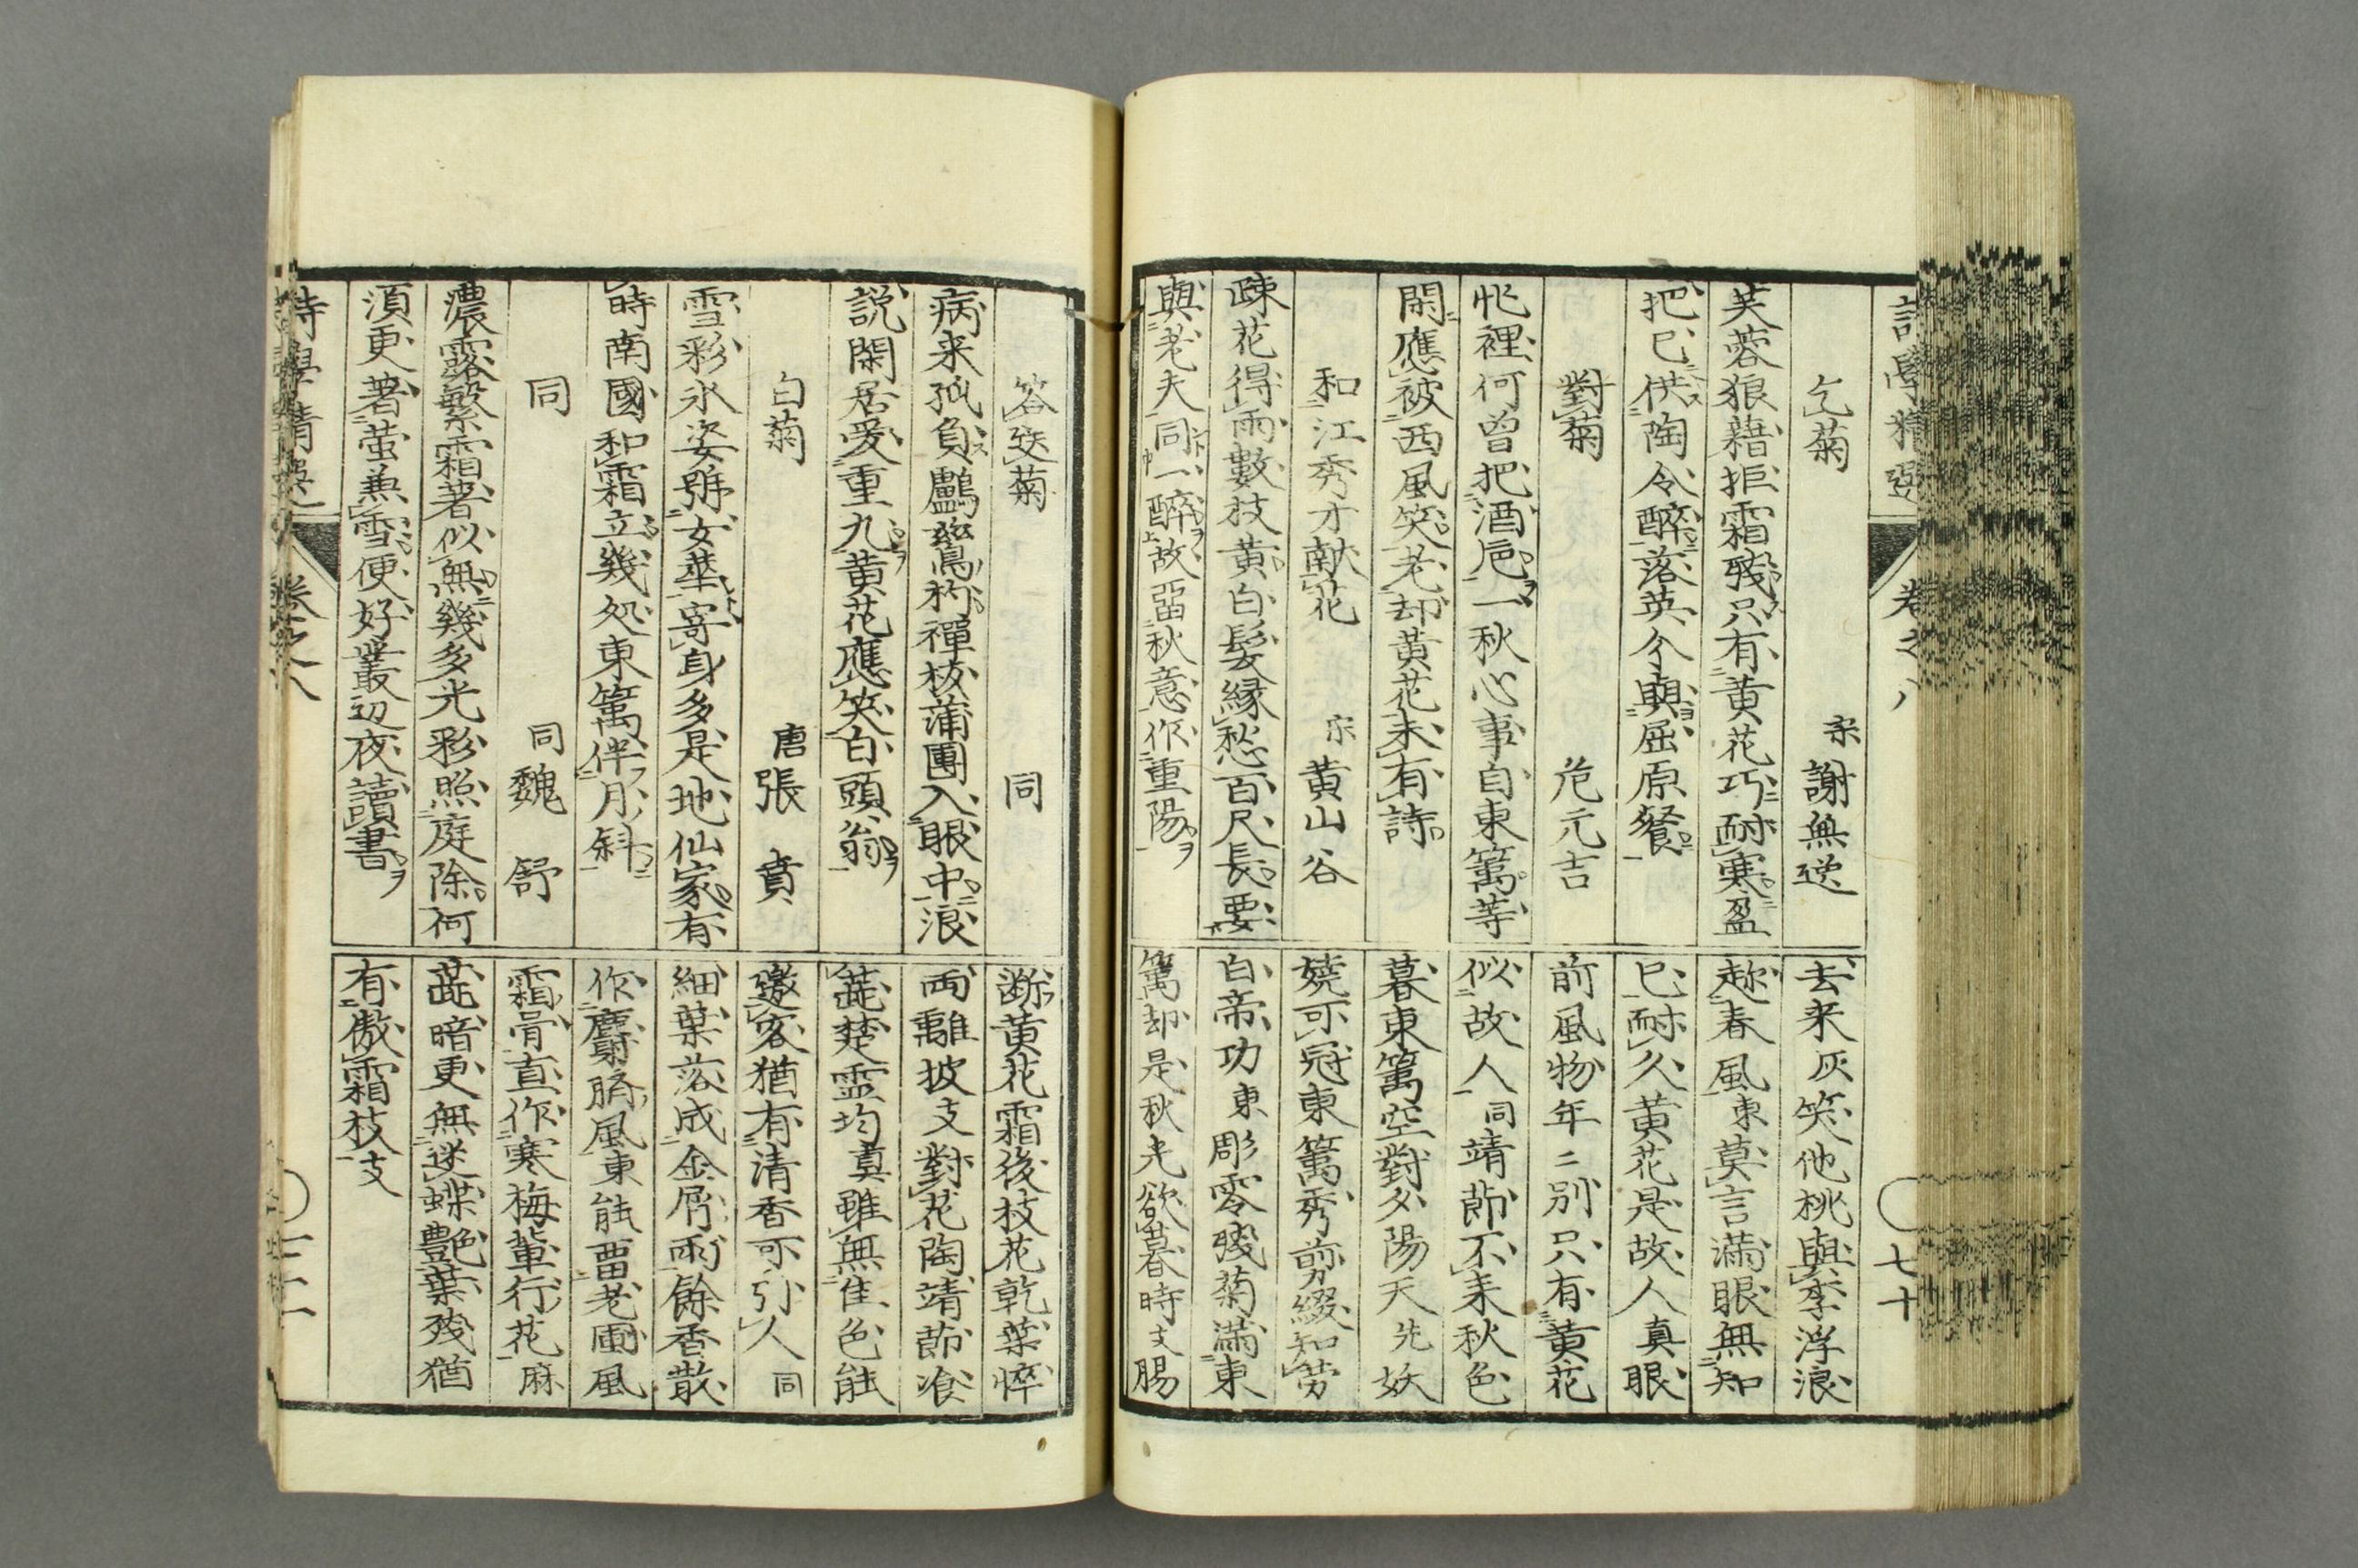 乞菊 宋 謝無逆
芙蓉狼藉拒霜残只有黄花巧耐寒盈
把已供陶令醉落英今與屈原餐
對菊 危元吉
忙裡何曽把酒巵一秋心事自東篱等
閑應被西風笑老却黄花未有詩
和江秀才献花 宋 黄山谷
疎花得雨數枝黄白髮縁愁百尺長要
與老夫同一醉故畱秋意作重陽
去来灰笑他桃與李浮浪
趂春風東莫言滿眼無知
已耐久黄花是故人真眼
前風物年二別只有黄花
似故人同靖節不来秋色
暮東篱空對夕陽天先妖
嬈可冠東篱秀剪綴知労
白帝功東彫零残菊滿東
篱却是秋光欲暮時支腸
卷之八
七十
答送菊 同
病来孤負鸕鷀杓禪板蒲團入眼中浪
説閑居愛重九黄花應笑白頭翁
白菊 唐 張賁
雪彩氷姿號女華寄身多是地仙家有
時南國和霜立幾処東篱伴月斜
同 同 魏舒
濃露繁霜著似無幾多光彩照庭除何
須更著萤兼雪便好叢辺夜讀書
断黄花霜後枝花乾葉悴
両離披支對花陶靖節飡
蔬楚霊均真雖無隹色能
邀客猶有清香可引人同
細葉落成金屑雨餘香散
作麝臍風東能畱老圃風
霜骨直作寒梅輩行花麻
蔬暗更無迷蝶艶葉残猶
有傲霜枝支
詩學精選
卷之八